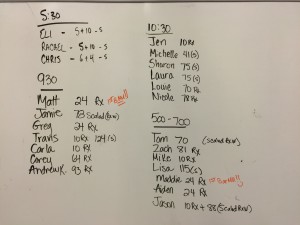 5:30
ELI - 5+10-S
RACHEL - 5+10-S
CHRIS - 6+4-S
930
Matt 24 Rx
Jamie 78 Scaled
Greg 24 Rx
Travis 10 Rx 124(s)
Carla 10 Rx
Corey 64 Rx
Andrew K. 93 Rx
10:30
Jen 10 Rd
Michelle 41(s)
Sharon 75(s)
Laura 75(s)
Lowe 70 Rx
Nicole 78 Rx
500-700
Tom 70 (Scaled Row)
Zach 81 Rx
Mike 10 Rx
Lisa 115(s)
Maddie 24 Rx
Aiden 24 Rx
Jason 10 Rx + 88 (Scaled Row)